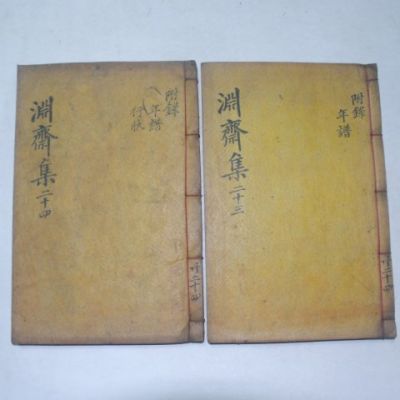 附錄
年譜
淵齋集 二十三
共二十四
附錄
年譜
行狀
淵齋集 二十四
共二十四